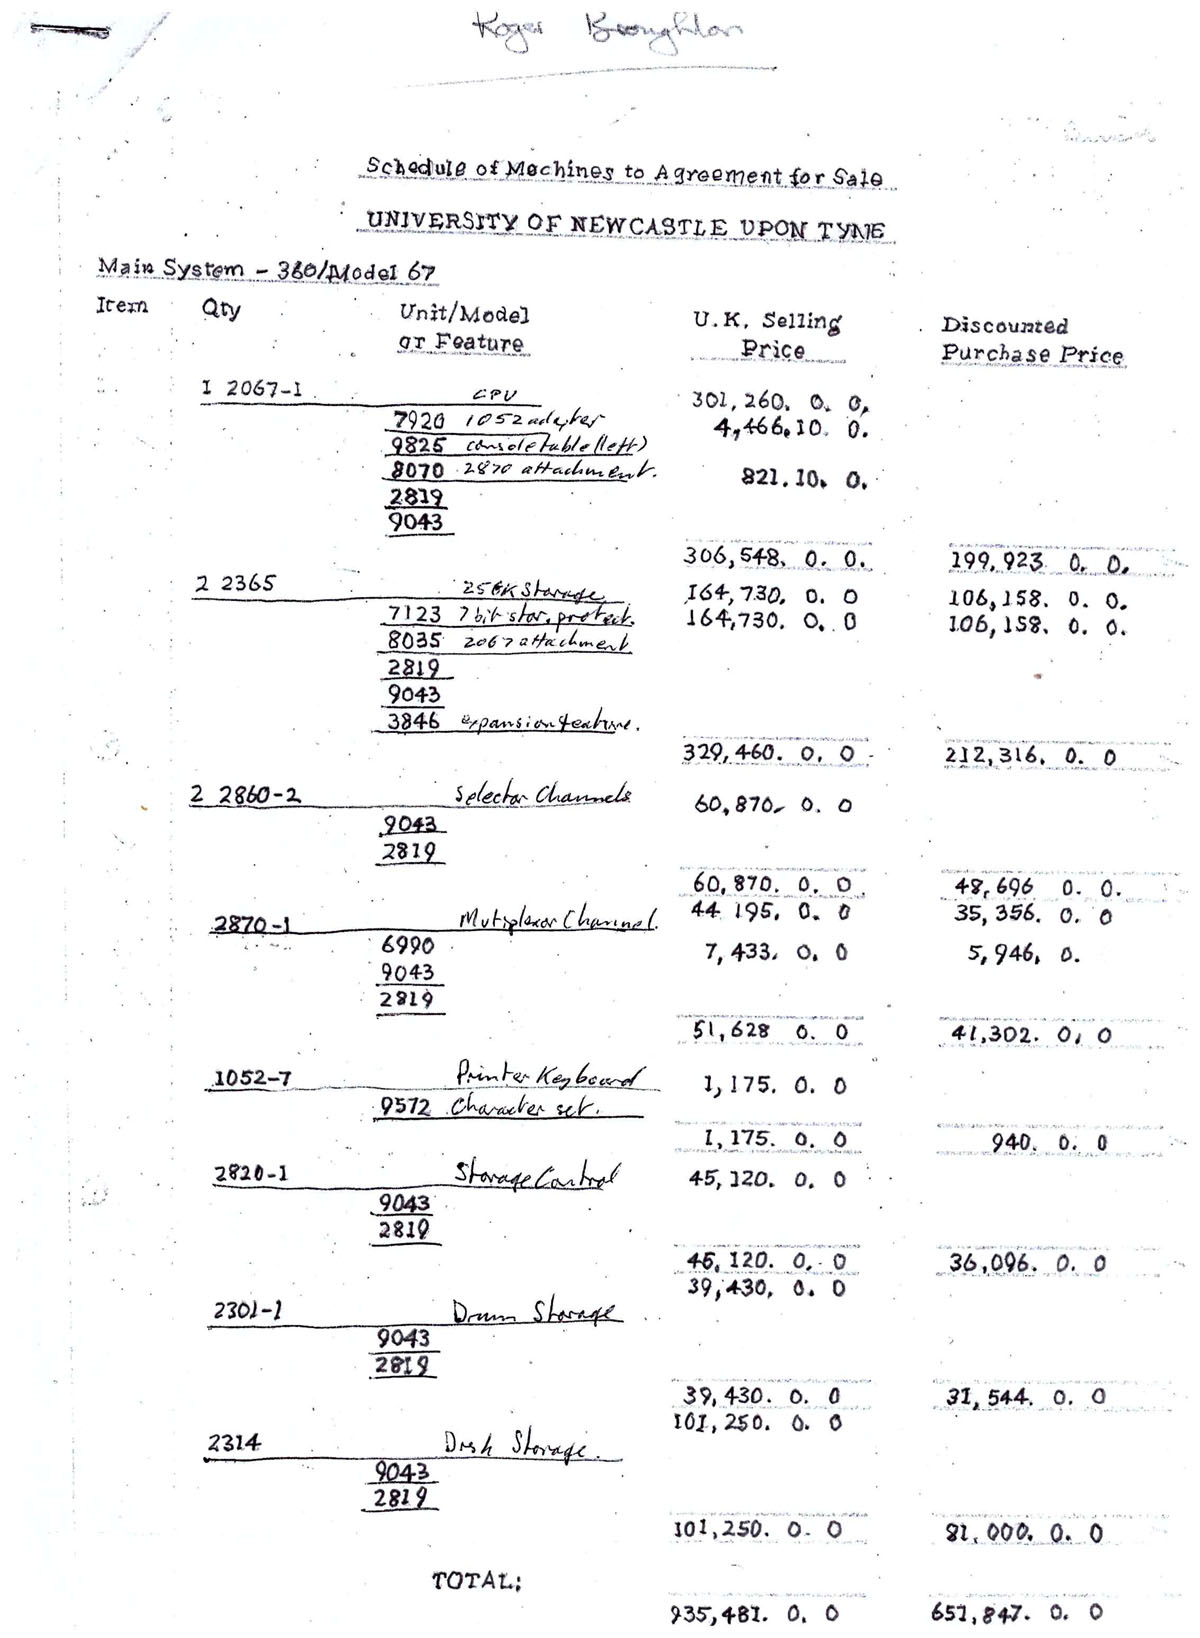 Roger Broughton
Schedule of Machines to Agreement for Sale
UNIVERSITY OF NEWCASTLE UPON TYNE
Main System - 360/Model 67
Item Qty Unit/Model or Feature U.K. Selling Price Discounted Purchase Price
1 2067-1 CPU 301,260. 0. 0.
7920 1052 adapter 4,466.10. 0.
9825 console table (left)
8070 2870 attachment. 821.10. 0.
2819
9043
306,548. 0. 0. 199,923 0. 0.
2 2365 256K Storage 164,730. 0. 0 106,158. 0. 0.
7123 7 bit stor. protect. 164,730. 0. 0 106,158. 0. 0.
8035 2067 attachment
2819
9043
3846 expansion feature.
329,460. 0. 0 212,316. 0. 0
2 2860-2 Selector Channels 60,870. 0. 0
9043
2819
60,870. 0. 0. 48,696 0. 0.
2870-1 Mutiplexor Channel. 44 195. 0. 0 35,356. 0. 0
6990 7,433. 0. 0 5,946. 0.
9043
2819
51,628 0. 0 41,302. 0. 0
1052-7 Printer Keyboard 1,175. 0. 0
9572 Character set.
1,175. 0. 0 940. 0. 0
2820-1 Storage Control 45,120. 0. 0
9043
2819
45,120. 0. 0 36,096. 0. 0
39,430. 0. 0
2301-1 Drum Storage
9043
2819
39,430. 0. 0 31,544. 0. 0
101,250. 0. 0
2314 Disk Storage.
9043
2819
101,250. 0. 0 81,000. 0. 0
TOTAL:
935,481. 0. 0 651,847. 0. 0